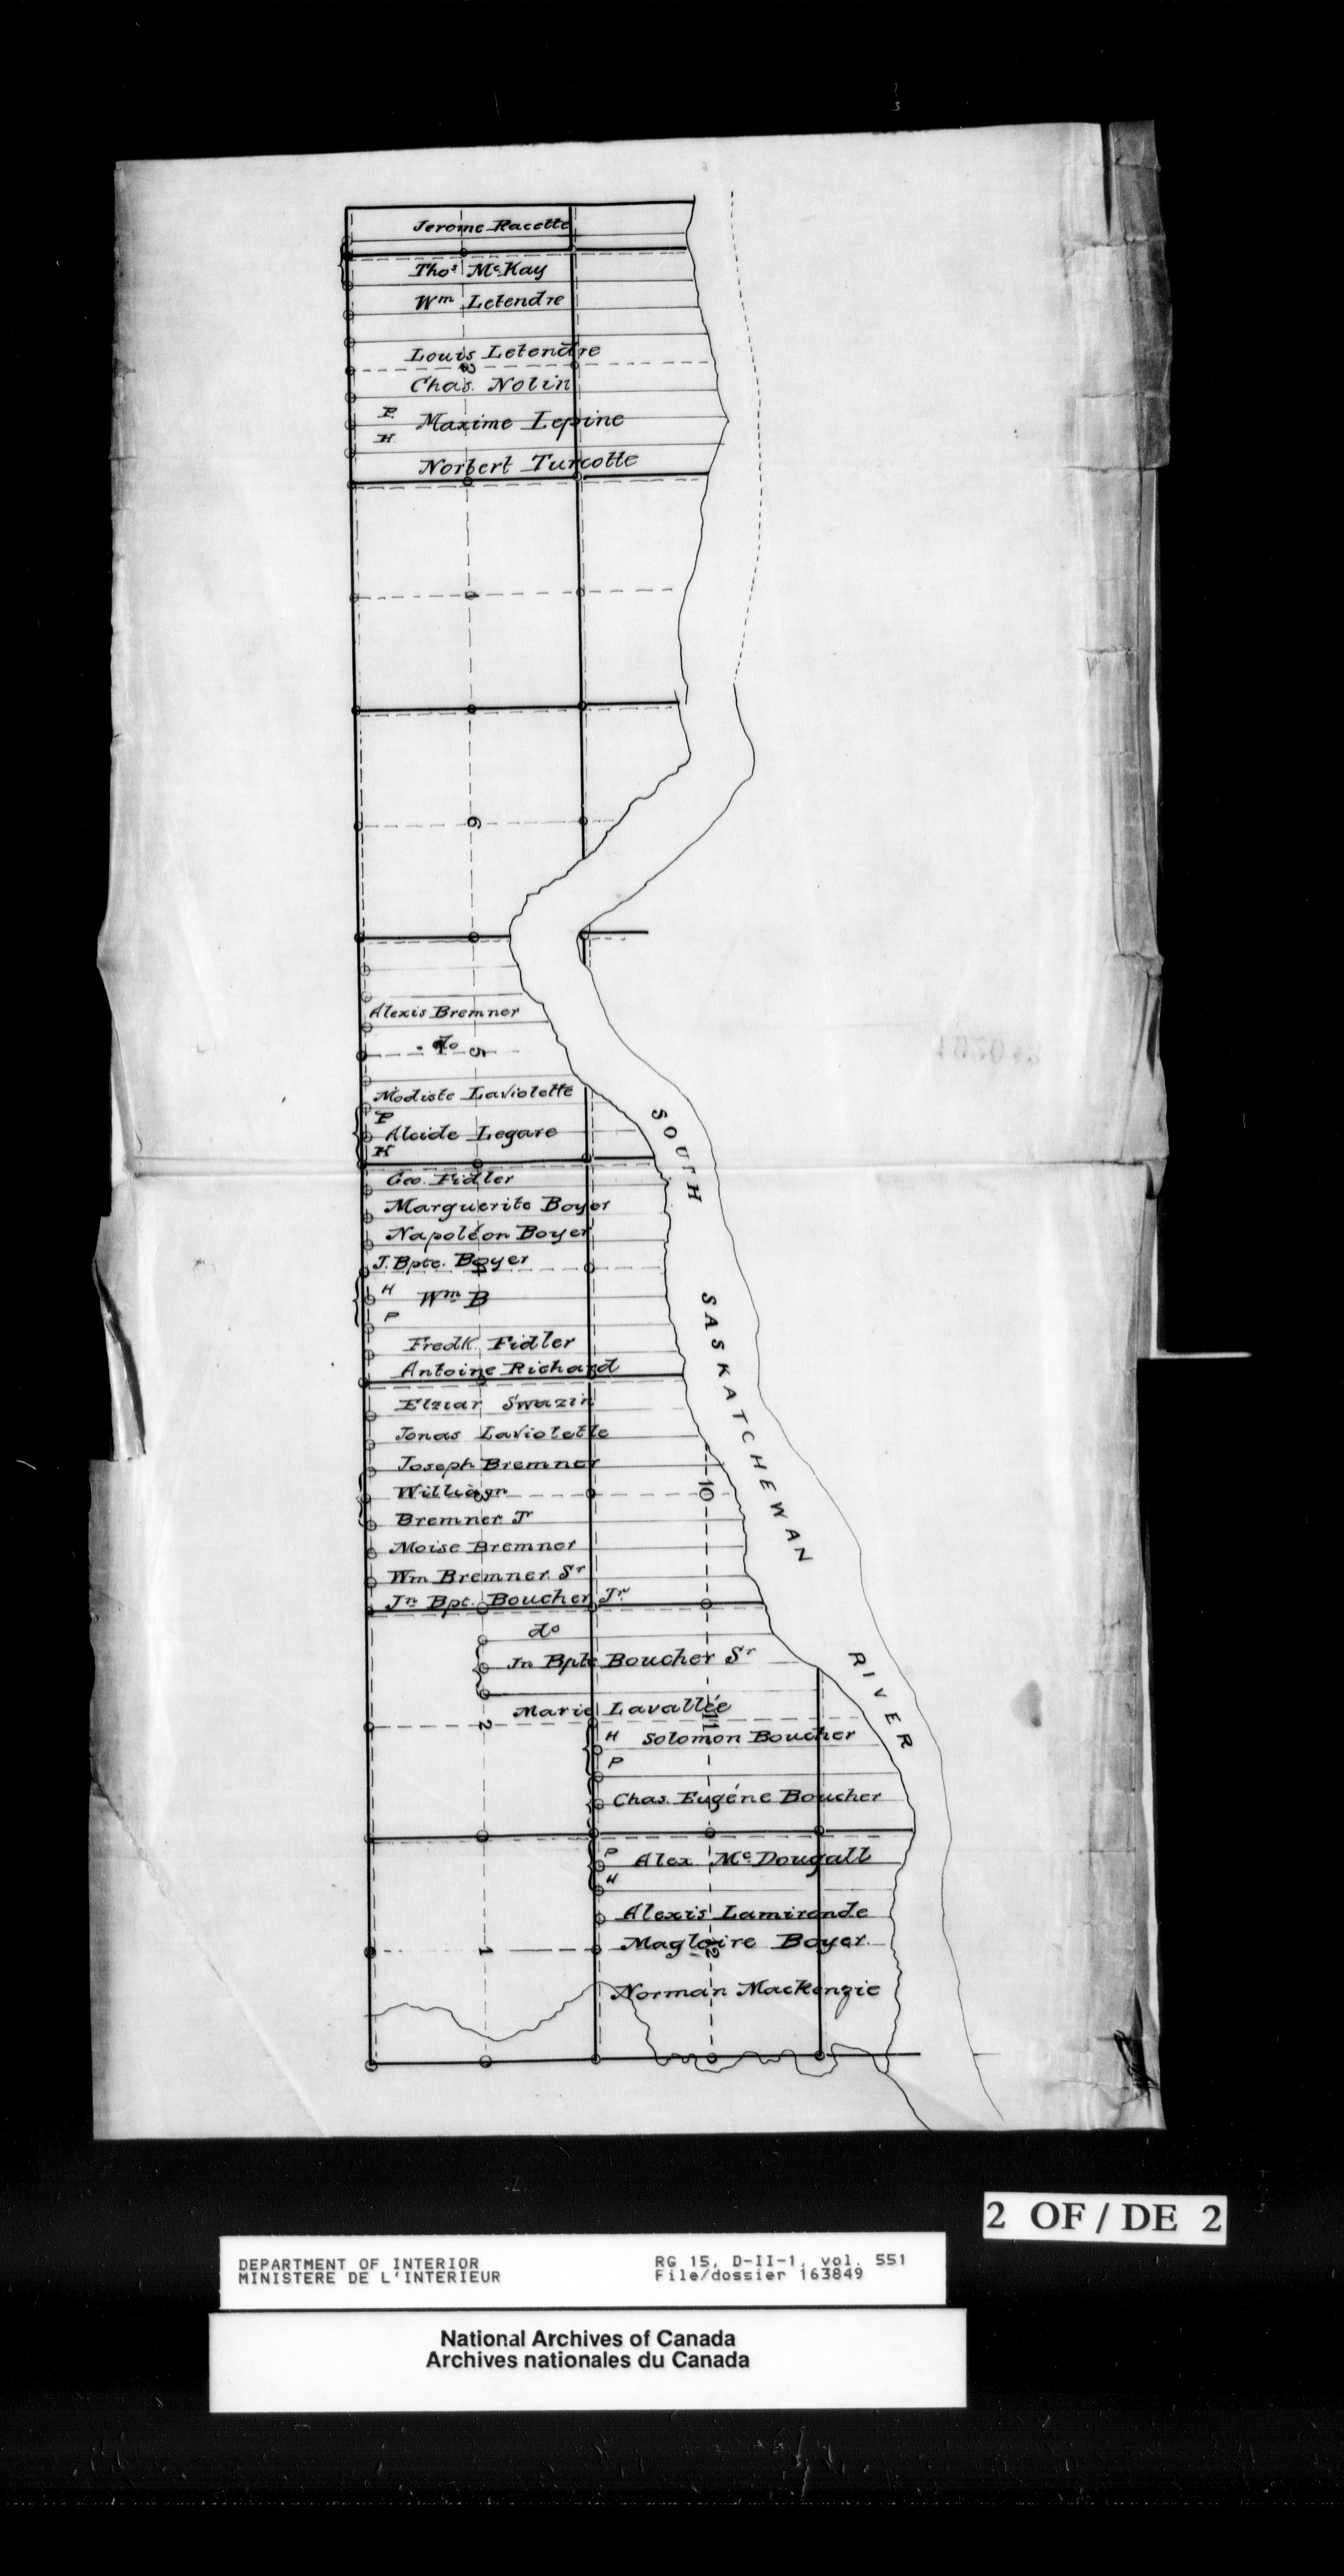 Jerome Racette
Thos McKay
Wm Letendre
Louis Letendre
Chas. Nolin
P.
Maxime Lepine
H
Norbert Turcotte
6
Alexis Bremner
do
5
Modiste Laviolette
P
Alcide Legare
H
Geo. Fidler
Marguerite Boyer
Napoléon Boyer
J. Bpte. Boyer
4
H
Wm B
P
Fredk. Fidler
Antoine Richard
Elziar Swazin
Jonas Laviolette
Joseph Bremner
William
3
10
Bremner Jr
Moise Bremner
Wm Bremner Sr
Jn Bpt. Boucher Jr.
do
Jn Bpte Boucher Sr
Marie Lavallée
2
11
H Solomon Boucher
P
Chas. Eugéne Boucher
P
Alex McDougall
H
Alexis Lamirande
Magloire Boyer
1
12
Norman Mackenzie
SOUTH SASKATCHEWAN RIVER
2 OF / DE 2
DEPARTMENT OF INTERIOR
MINISTERE DE L'INTERIEUR
RG 15, D-II-1, vol. 551
File/dossier 163849
National Archives of Canada
Archives nationales du Canada